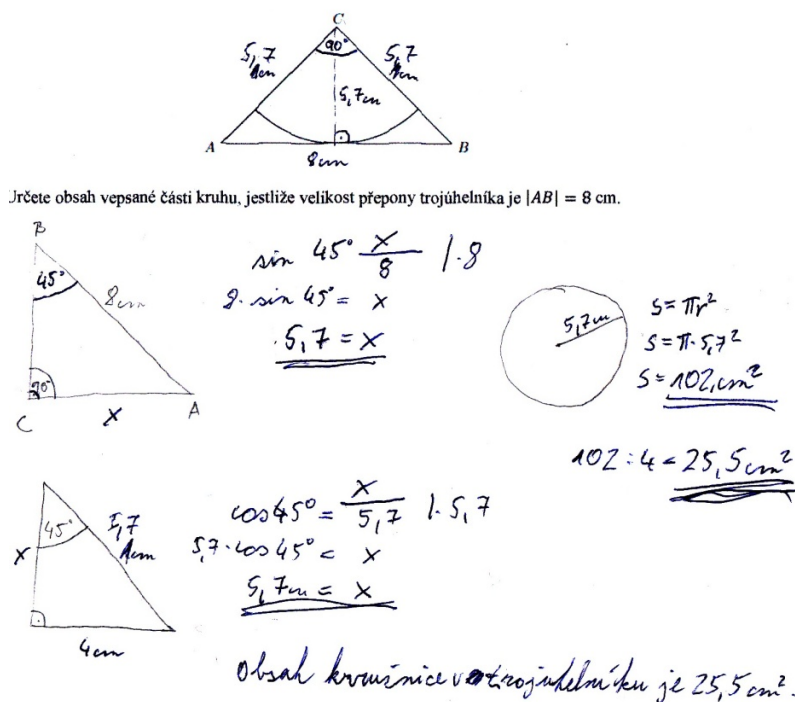 C
90°
5,7 cm
5,7 cm
5,7 cm
A
B
8 cm
Určete obsah vepsané části kruhu, jestliže velikost přepony trojúhelníka je |AB| = 8 cm.
B
45°
8 cm
90°
C
x
A
sin 45° x/8 /·8
8 · sin 45° = x
5,7 = x
5,7 cm
S = πr²
S = π · 5,7²
S = 102 cm²
102 : 4 = 25,5 cm²
45°
5,7 cm
x
4 cm
cos 45° = x/5,7 /· 5,7
5,7 · cos 45° = x
5,7 cm = x
Obsah kružnice v trojúhelníku je 25,5 cm².